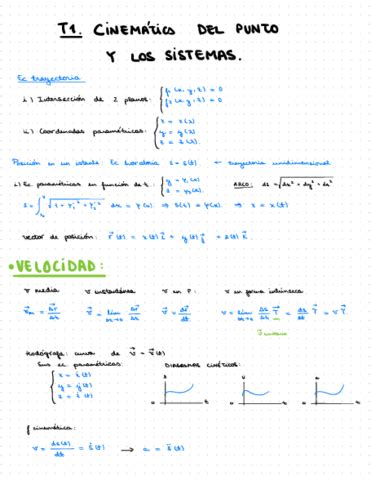 T1. CINEMÁTICA DEL PUNTO
Y LOS SISTEMAS.
Ec trayectoria
i) Intersección de 2 planos: { f₁(x, y, z) = 0
f₂(x, y, z) = 0
ii) Coordenadas paramétricas: { x = x(λ)
y = y(λ)
z = z(λ).
Posición en un instante Ec horaria s = s(t) ← trayectoria unidimensional
i) Ec paramétricas en función de { y = φ₁(x)
z = φ₂(x). ARCO: ds = √dx² + dy² + dz²
s = ∫ √1 + φ₁'² + φ₂'² dx = φ(x) ⇒ s(t) = φ(x). ⇒ x = x(t)
vector de posición: r⃗(t) = x(t) i⃗ + y(t) j⃗ + z(t) k⃗
• VELOCIDAD:
v media v instantánea v en P: v en forma intrínseca
v⃗m = Δr⃗/Δt v⃗ = lim Δt→0 Δr⃗/Δt v⃗ = dr⃗/dt v = lim Δt→0 Δs/Δt T⃗ = ds/dt T⃗ = v T⃗
Hodógrafa: curva de v⃗ = v⃗(t)
Sus ec paramétricas: DIAGRAMAS CINÉTICOS:
{ x = ẋ(t)
y = ẏ(t)
z = ż(t)
t t t
f cinemática:
v = ds(t)/dt = ṡ(t) → a = s̈(t)